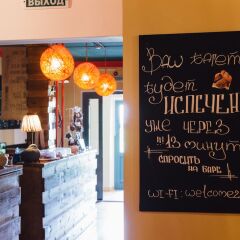 ВЫХОД
Ваш билет
будет
ИСПЕЧЕН
уже через
13 минут
спросить
на баре!
WI-FI: welcome2